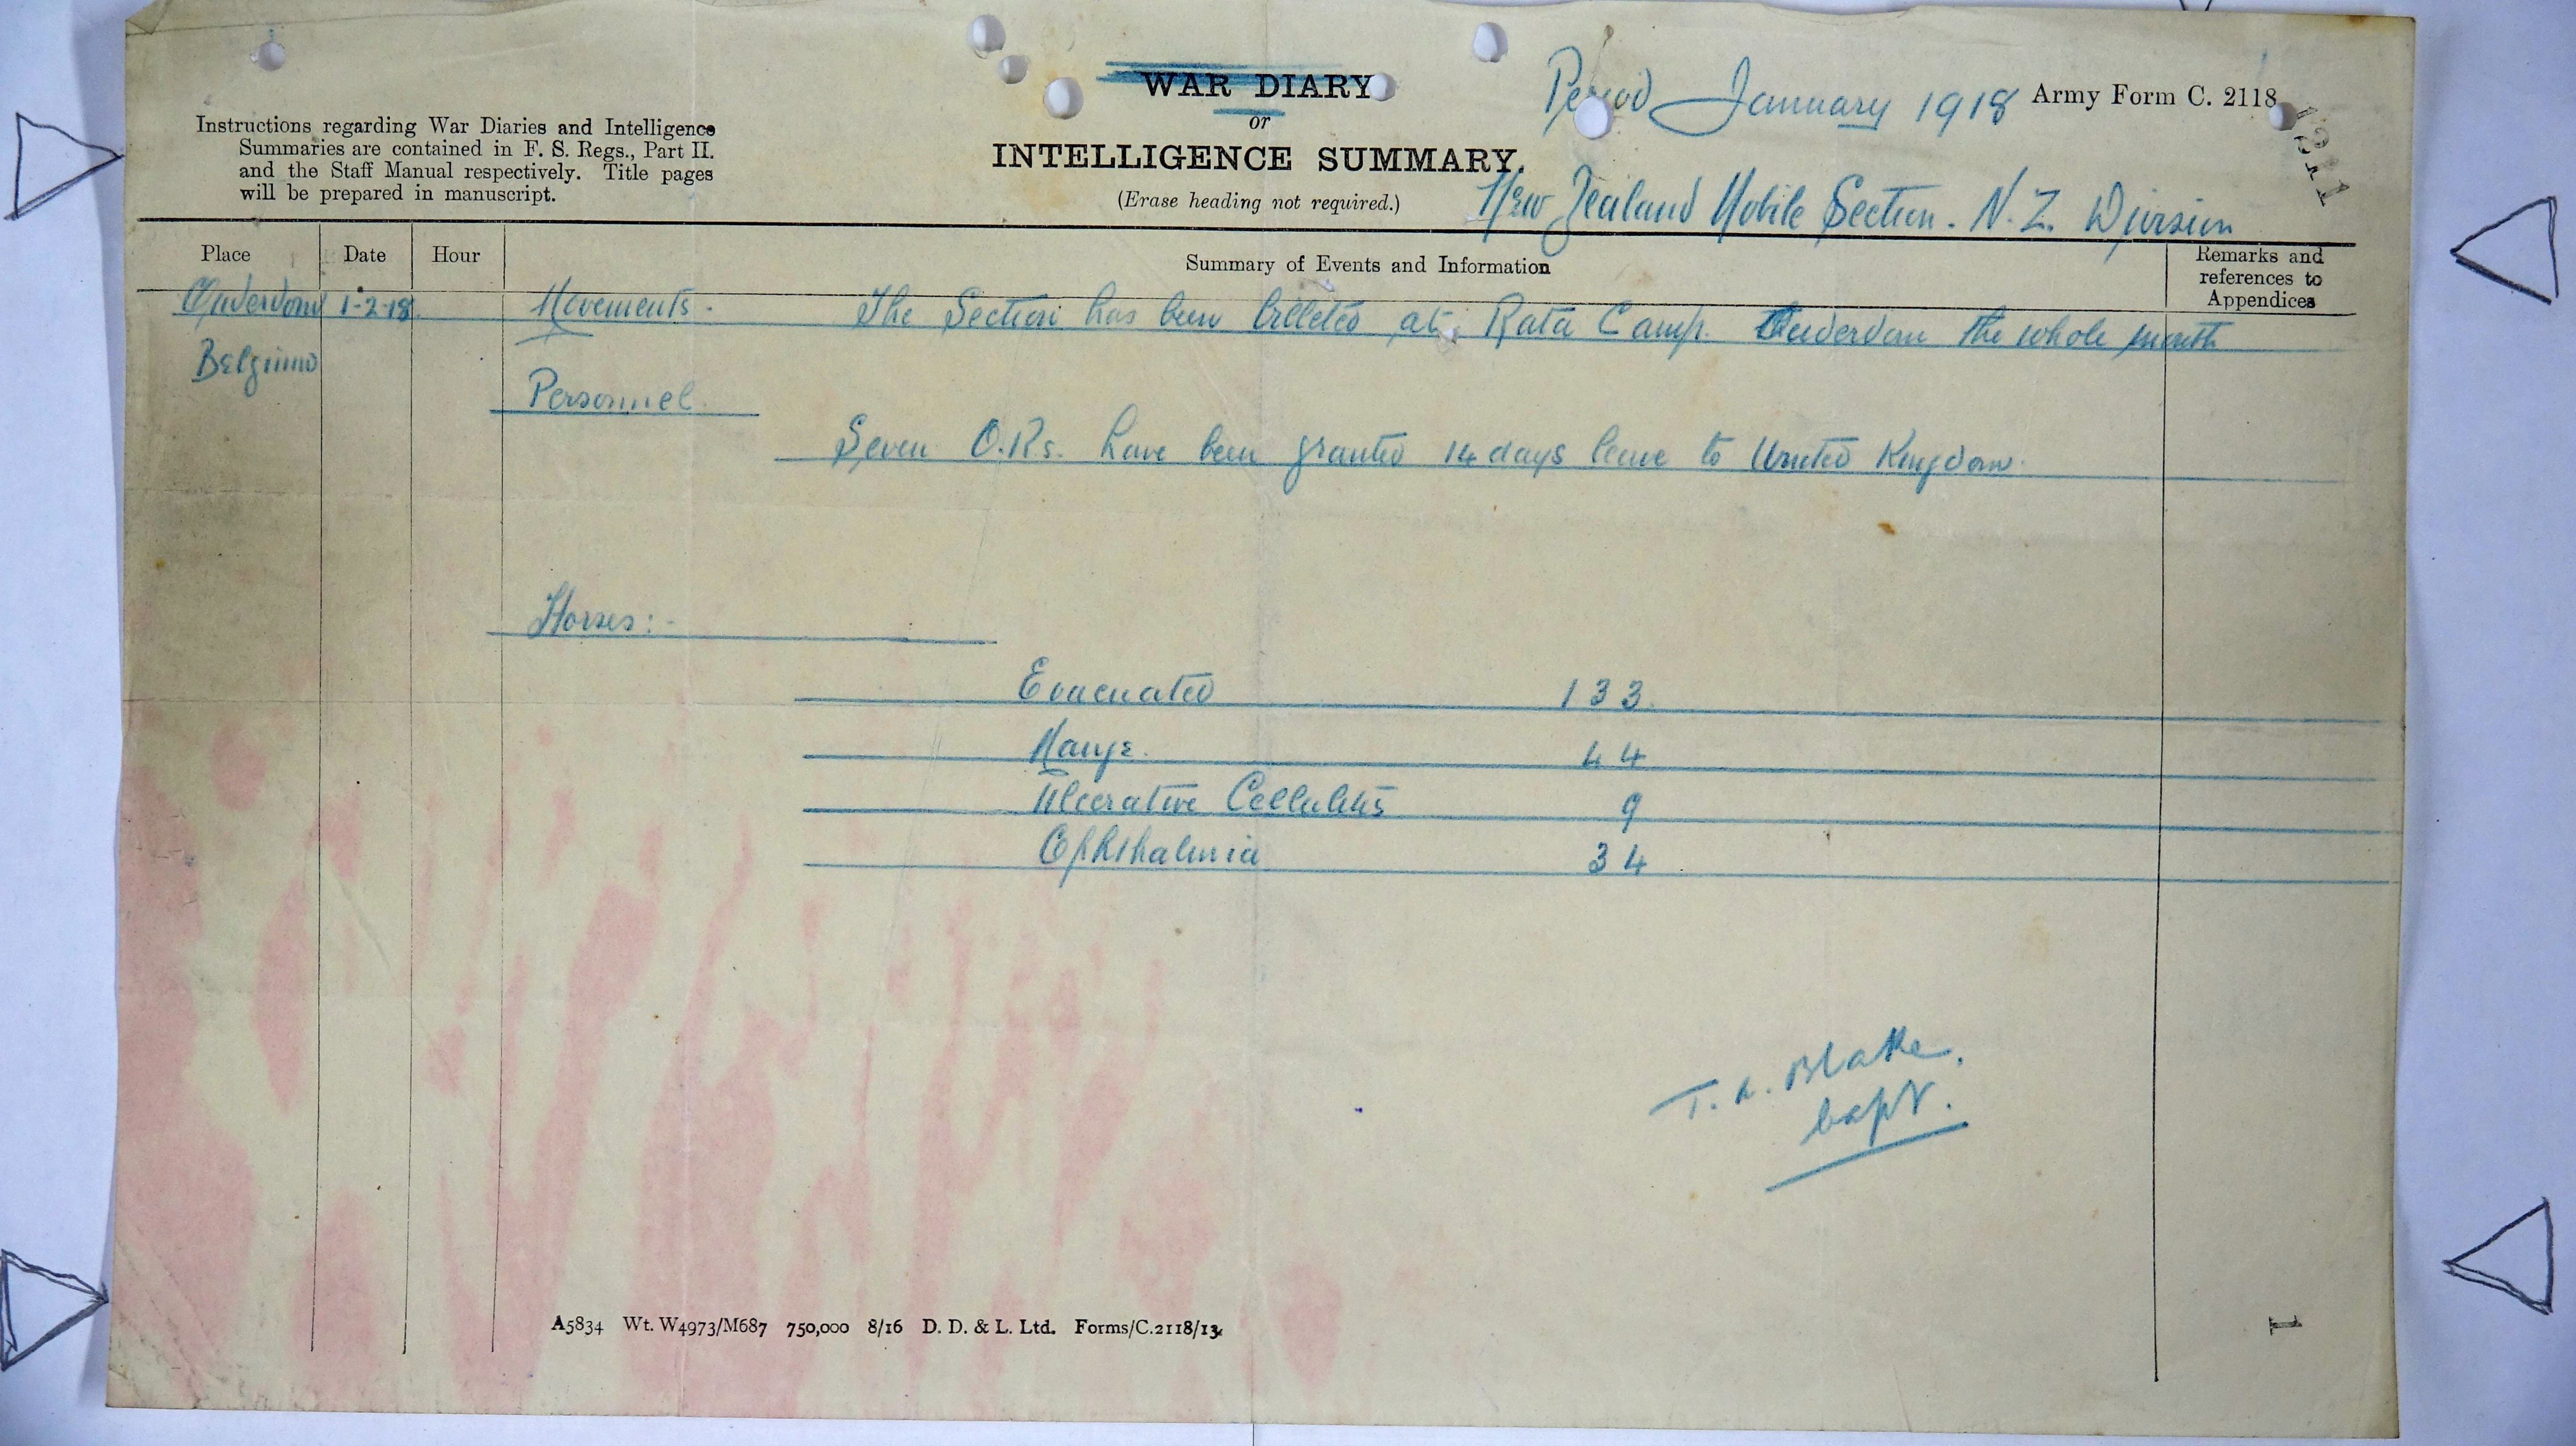 WAR DIARY
or
INTELLIGENCE SUMMARY.
(Erase heading not required.)
Instructions regarding War Diaries and Intelligence
Summaries are contained in F. S. Regs., Part II.
and the Staff Manual respectively. Title pages
will be prepared in manuscript.
Period January 1918
Army Form C. 2118
New Zealand Mobile Section. N.Z. Division
Place Date Hour Summary of Events and Information Remarks and
references to
Appendices
Ouderdom 1-2-18. Movements. The Section has been billeted at Rata Camp. Ouderdom the whole month
Belgium
Personnel.
Seven O.Rs. have been granted 14 days leave to United Kingdom.
Horses:-
Evacuated 133.
Mange. 44
Ulcerative Cellulitis 9
Ophthalmia 34
Blake.
Capt.
A5834 Wt. W4973/M687 750,000 8/16 D. D. & L. Ltd. Forms/C.2118/13.
1